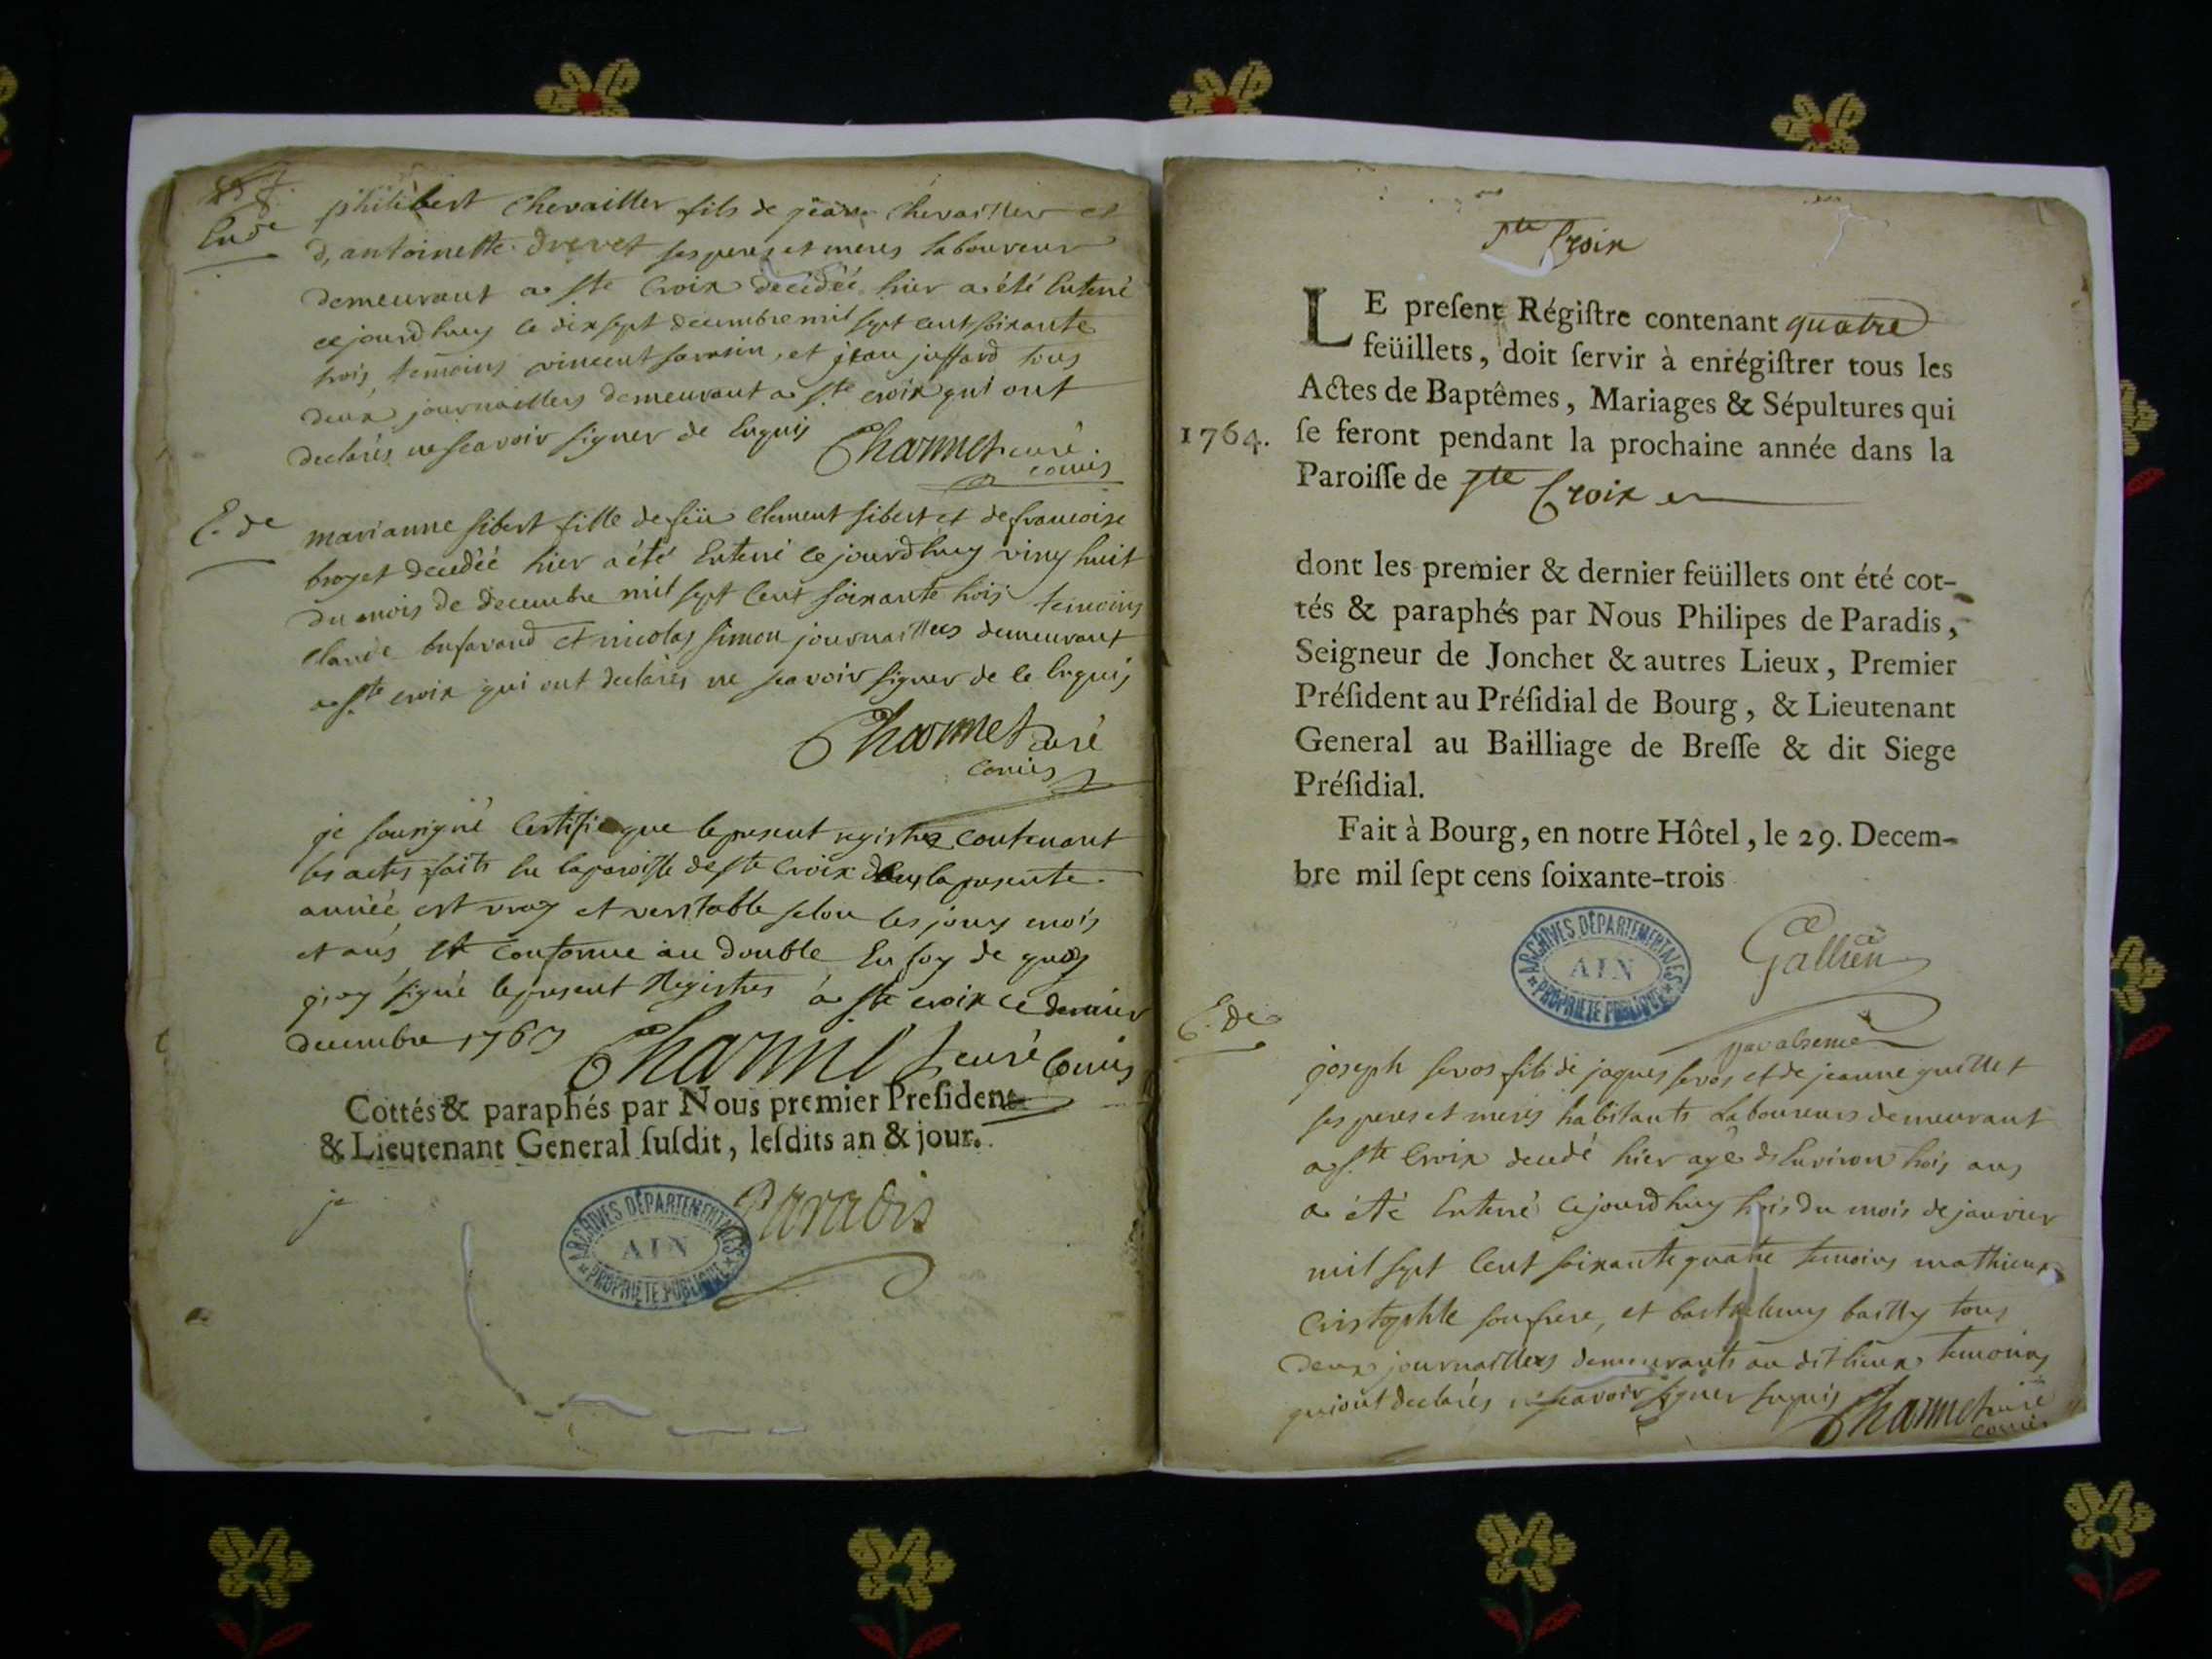 En de
philibert Chevailler fils de jean Chevailler et
d, antoinette drevet ses peres et meres laboureur
demeurant a ste Croix décédée hier a été Enterré
cejourdhuy le dix sept decembre mil sept cent soixante
trois, temoins vincent sarasin, et jean juffard tous
deux journaillers demeurant a ste croix qui ont
declarés ne scavoir signer de Enquis Charmet curé
comis
E. de
marianne sibert fille de feü Clement sibert et de francoise
broyet decedéé hier a été Enterré cejourdhuy ving huit
du mois de decembre mil sept cent soixante trois temoins
Claude et nicolas simon journaillers demeurant
a ste croix qui ont declarés ne scavoir signer de le Enquis
Charmet curé
comis
je sousigné Certifie que le present registres contenant
les actes faits En la paroisse de ste Croix dans la presente
année, est vray et veritable selon les jours mois
et ans et Conforme au double En foy de quoy
j'ay signé le present Registres a ste croix ce dernier
decembre 1763 Charmet curé Comis
Cottés & paraphés par Nous premier Presidenr
& Lieutenant General susdit, lesdits an & jour.
je
Paradis
ARCHIVES DÉPARTEMENTALES
AIN
PROPRIETE PUBLIQUE
Ste Croix
LE present Régistre contenant quatre
feüillets, doit servir à enrégistrer tous les
Actes de Baptêmes, Mariages & Sépultures qui
1764. se feront pendant la prochaine année dans la
Paroisse de Ste Croix
dont les premier & dernier feüillets ont été cot-
tés & paraphés par Nous Philipes de Paradis,
Seigneur de Jonchet & autres Lieux, Premier
Président au Présidial de Bourg, & Lieutenant
General au Bailliage de Bresse & dit Siege
Présidial.
Fait à Bourg, en notre Hôtel, le 29. Decem-
bre mil sept cens soixante-trois
ARCHIVES DÉPARTEMENTALES
AIN
PROPRIETE PUBLIQUE
Gallien
par absence
E. de
joseph servos fils de jaques servos et de jeanne guillet
ses peres et meres habitants Laboureurs demeurant
a ste Croix decedé hier agé d'Environ trois ans
a été Enterré cejourdhuy trois du mois de janvier
mil sept Cent soixante quatre temoins mathieux
Cristophle son frere, et barthelemy bailly tous
deux journaillers demeurants au dit lieux temoins
qui ont declarés ne scavoir signer Enquis Charmet curé
comis